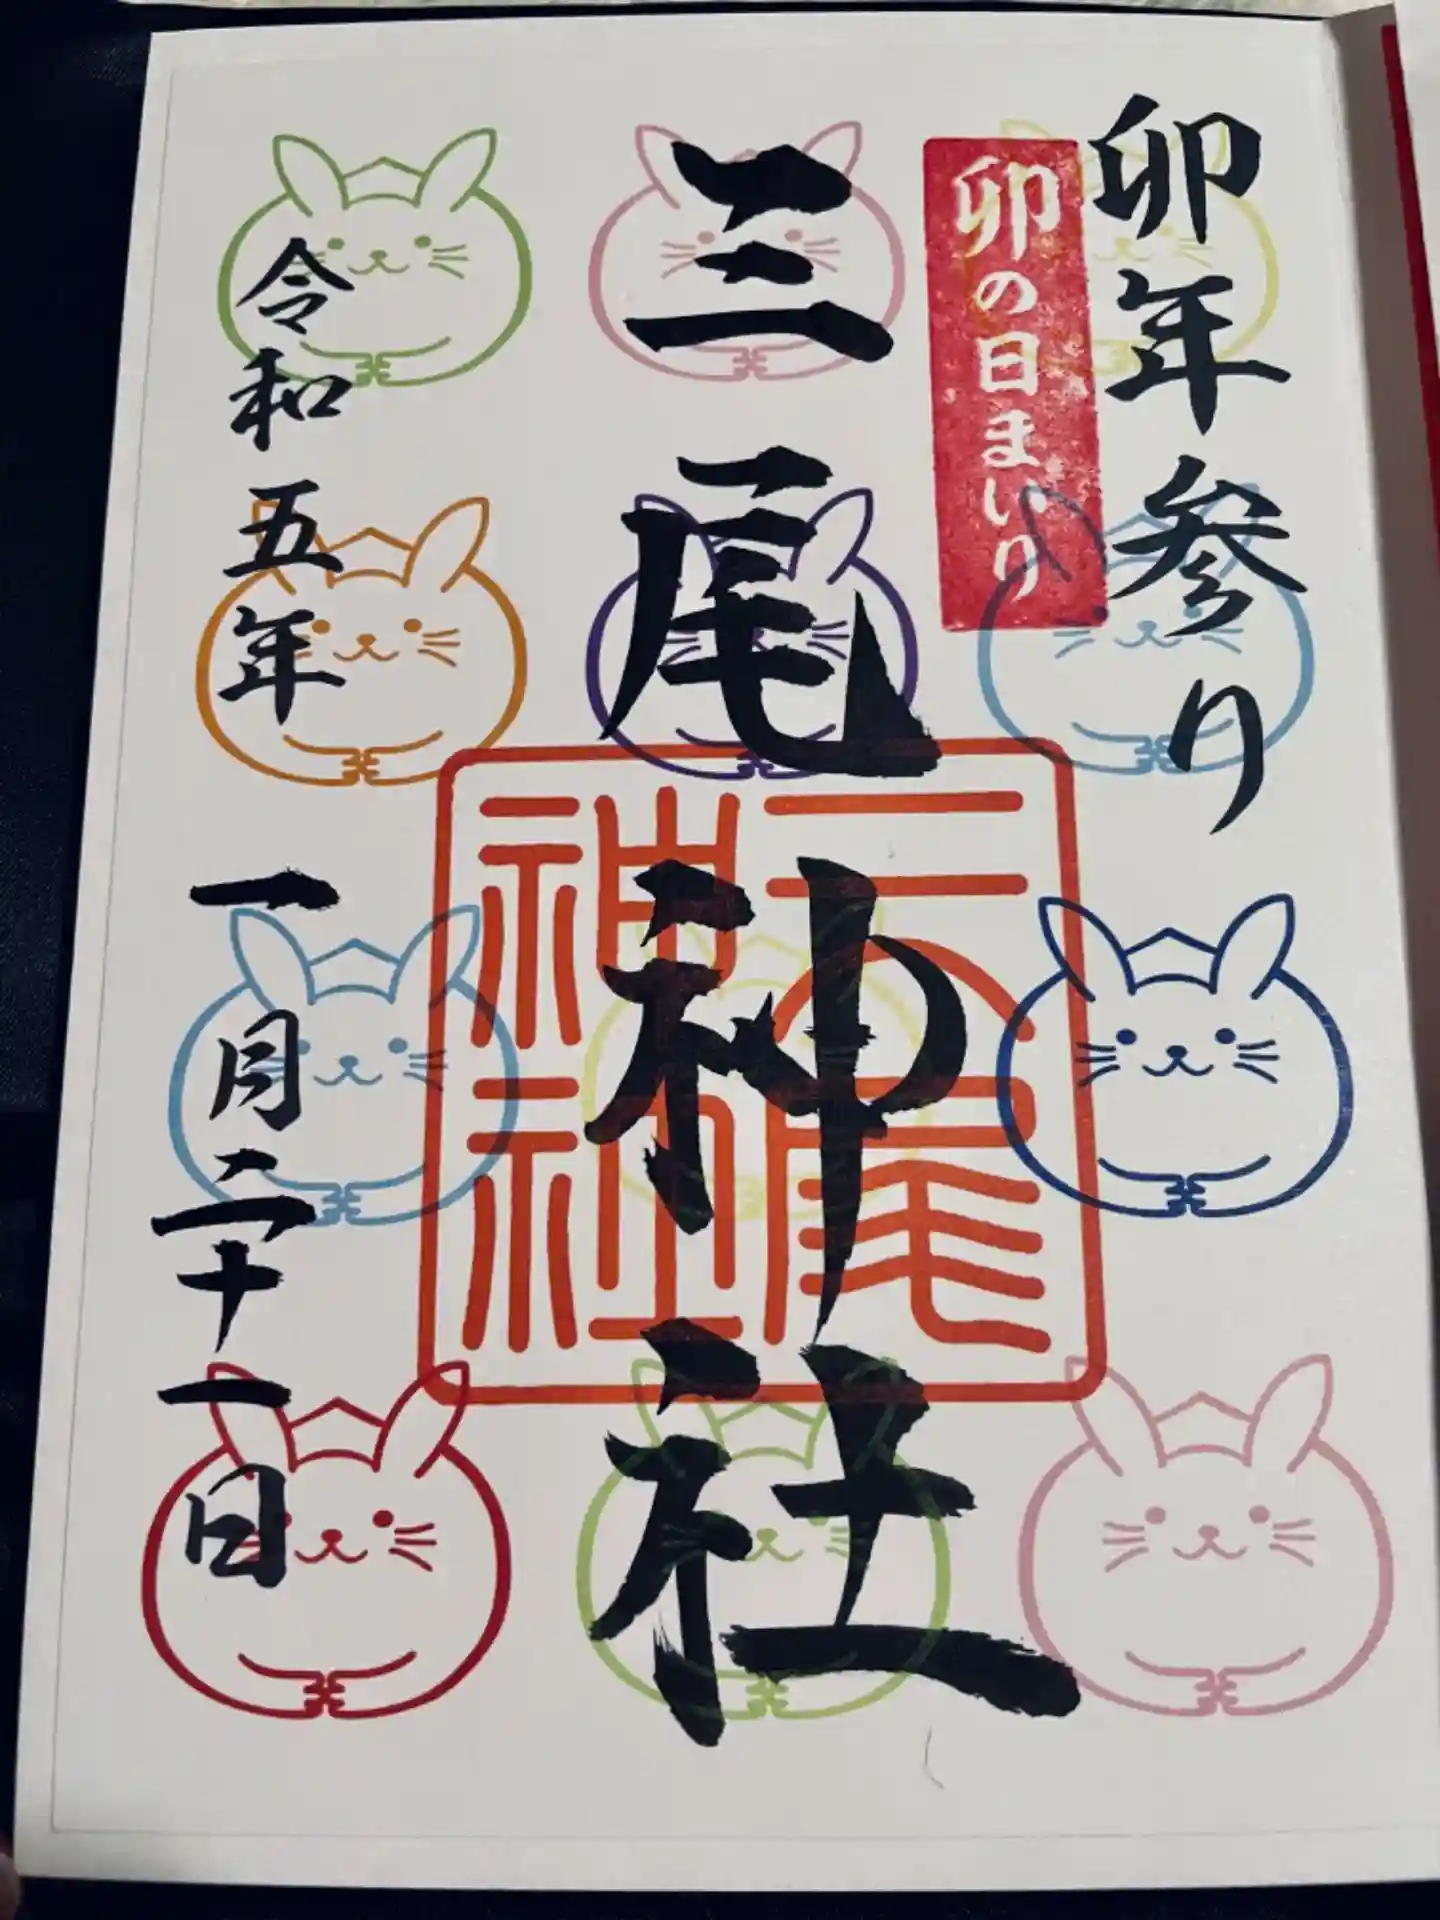 卯年参り
卯の日まいり
三尾神社
三尾
神社
令和五年
一月二十一日